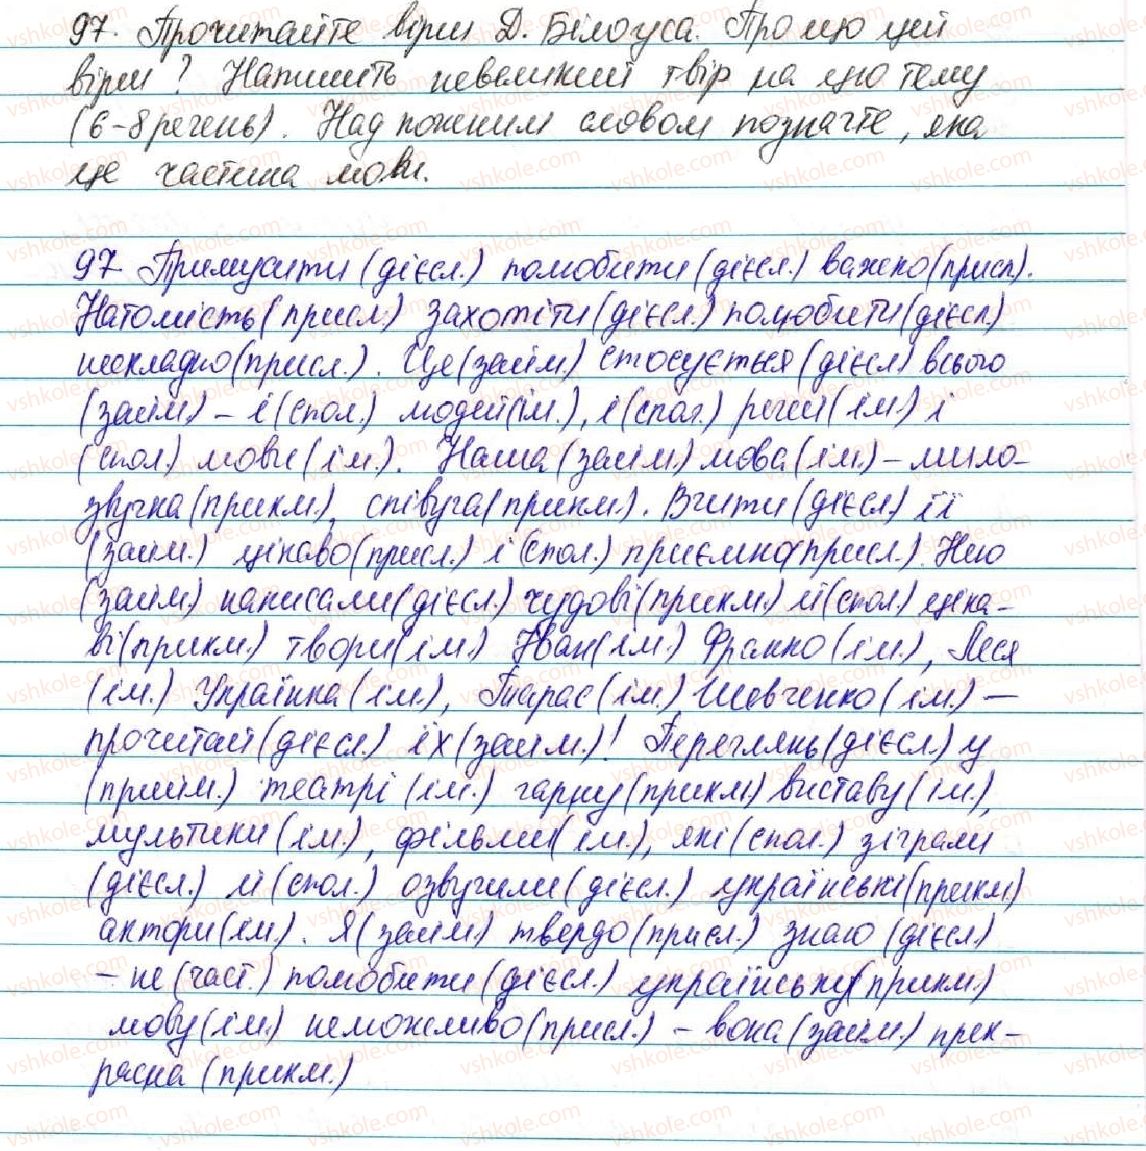 97. Прочитайте вірш Д. Білоуса. Про що цей
вірш? Напишіть невеликий твір на цю тему
(6-8 речень). Над кожним словом позначте, яка
це частина мови.
97 Примусити (дієсл.) полюбити (дієсл.) важко (присл).
Натомість (присл.) захотіти (дієсл.) полюбити (дієсл.)
нескладно (присл.). Це (займ.) стосується (дієсл) всього
(займ.) – і (спол.) людей (ім.), і (спол.) речей (ім.) і
(спол.) мови (ім.). Наша (займ.) мова (ім.) – мило-
звучна (прикм.), співуча (прикм.). Вчити (дієсл.) її
(займ.) цікаво (присл.) і (спол.) приємно (присл.). Нею
(займ.) написали (дієсл.) чудові (прикм.) й (спол.) ціка-
ві (прикм.) твори (ім.) Іван (ім.) Франко (ім.), Леся
(ім.) Українка (ім.), Тарас (ім.) Шевченко (ім.) –
прочитай (дієсл.) їх (займ.)! Переглянь (дієсл.) у
(прийм.) театрі (ім.) гарну (прикм.) виставу (ім.),
мультики (ім.), фільми (ім.), які (спол.) зіграли
(дієсл.) й (спол.) озвучили (дієсл.) українські (прикм)
актори (ім.). Я (займ) твердо (присл.) знаю (дієсл)
– не (част.) полюбити (дієсл.) українську (прикм.)
мову (ім.) неможливо (присл.) – вона (займ.) прек-
расна (прикм.)